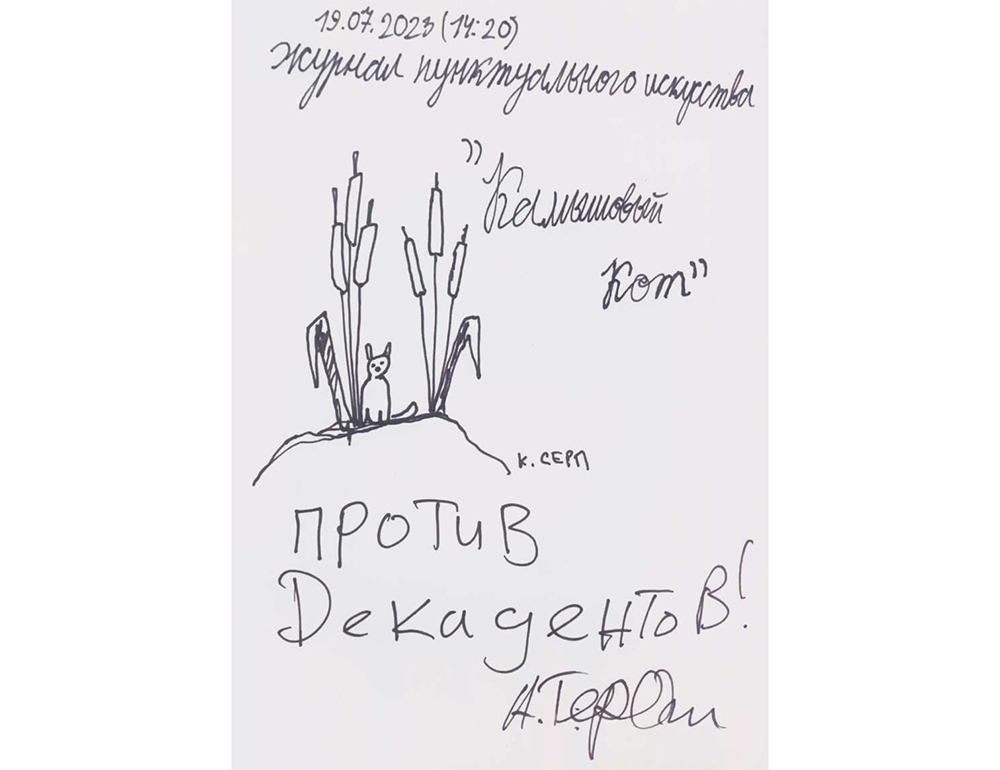 19.07.2023 (14:20)
Журнал пунктуального искусства
"Камышовый
Кот"
К. СЕРП
ПРОТИВ
ДекадентоВ!